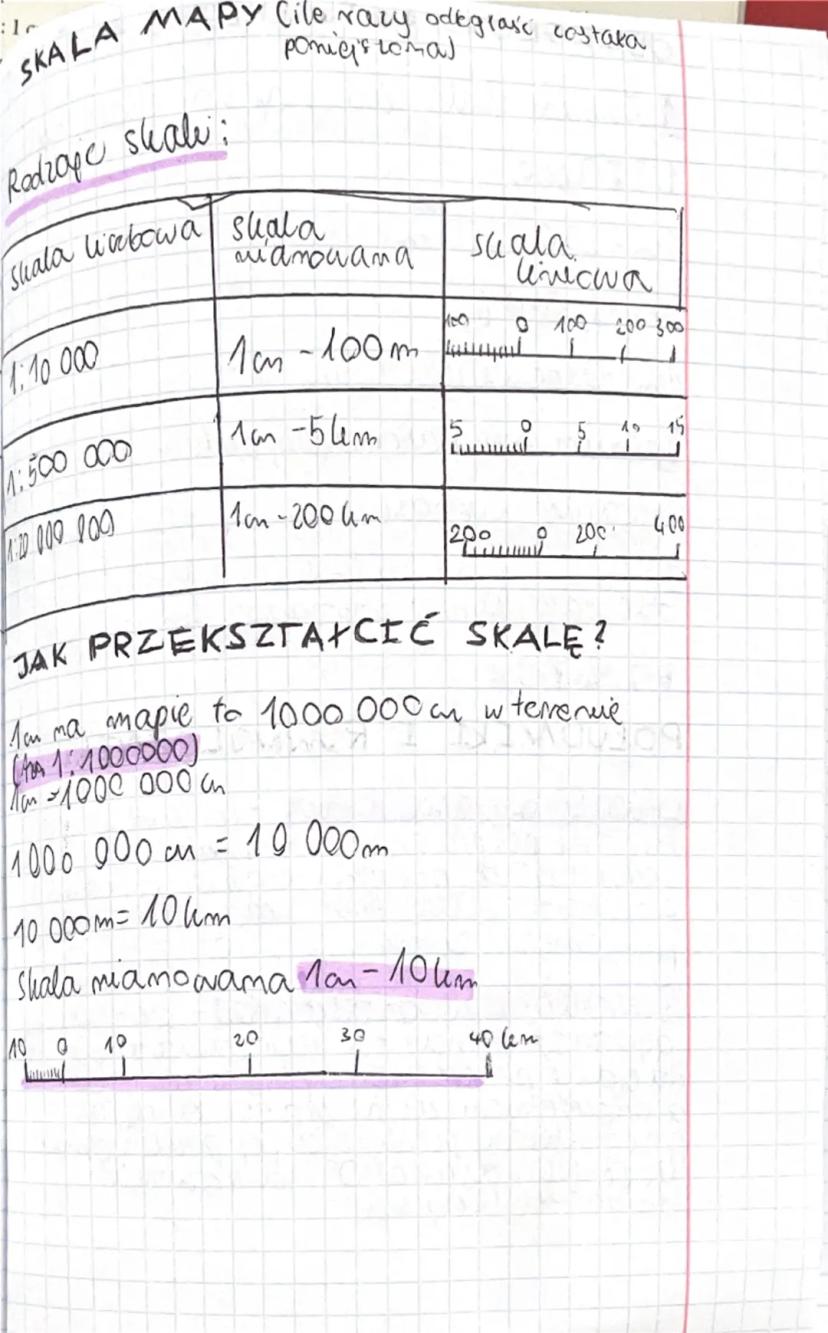 SKALA MAPY (ile razy odległość została
pomniejszona)
Rodzaje skali:
skala liczbowa
skala mianowana
skala liniowa
1:10 000
1cm - 100m
100 0 100 200 300
1:500 000
1cm - 5km
5 0 5 10 15
1:20 000 000
1cm - 200km
200 0 200 400
JAK PRZEKSZTAŁCIĆ SKALĘ?
1cm na mapie to 1000 000cm w terenie
1:1000000)
1cm = 1000 000 cm
1000 000 cm = 10 000m
10 000m = 10km
Skala mianowana 1cm - 10km
10 0 10 20 30 40 km